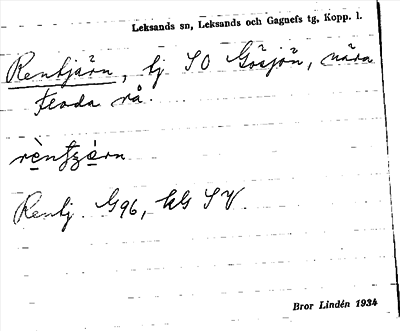 Leksands sn, Leksands och Gagnefs tg, Kopp. l.
Rentjärn, tj SO Gåsjön, nära
Floda rå.
rèntjæ̀rn
Rentj. G96, kbl SV.
Bror Lindén 1934